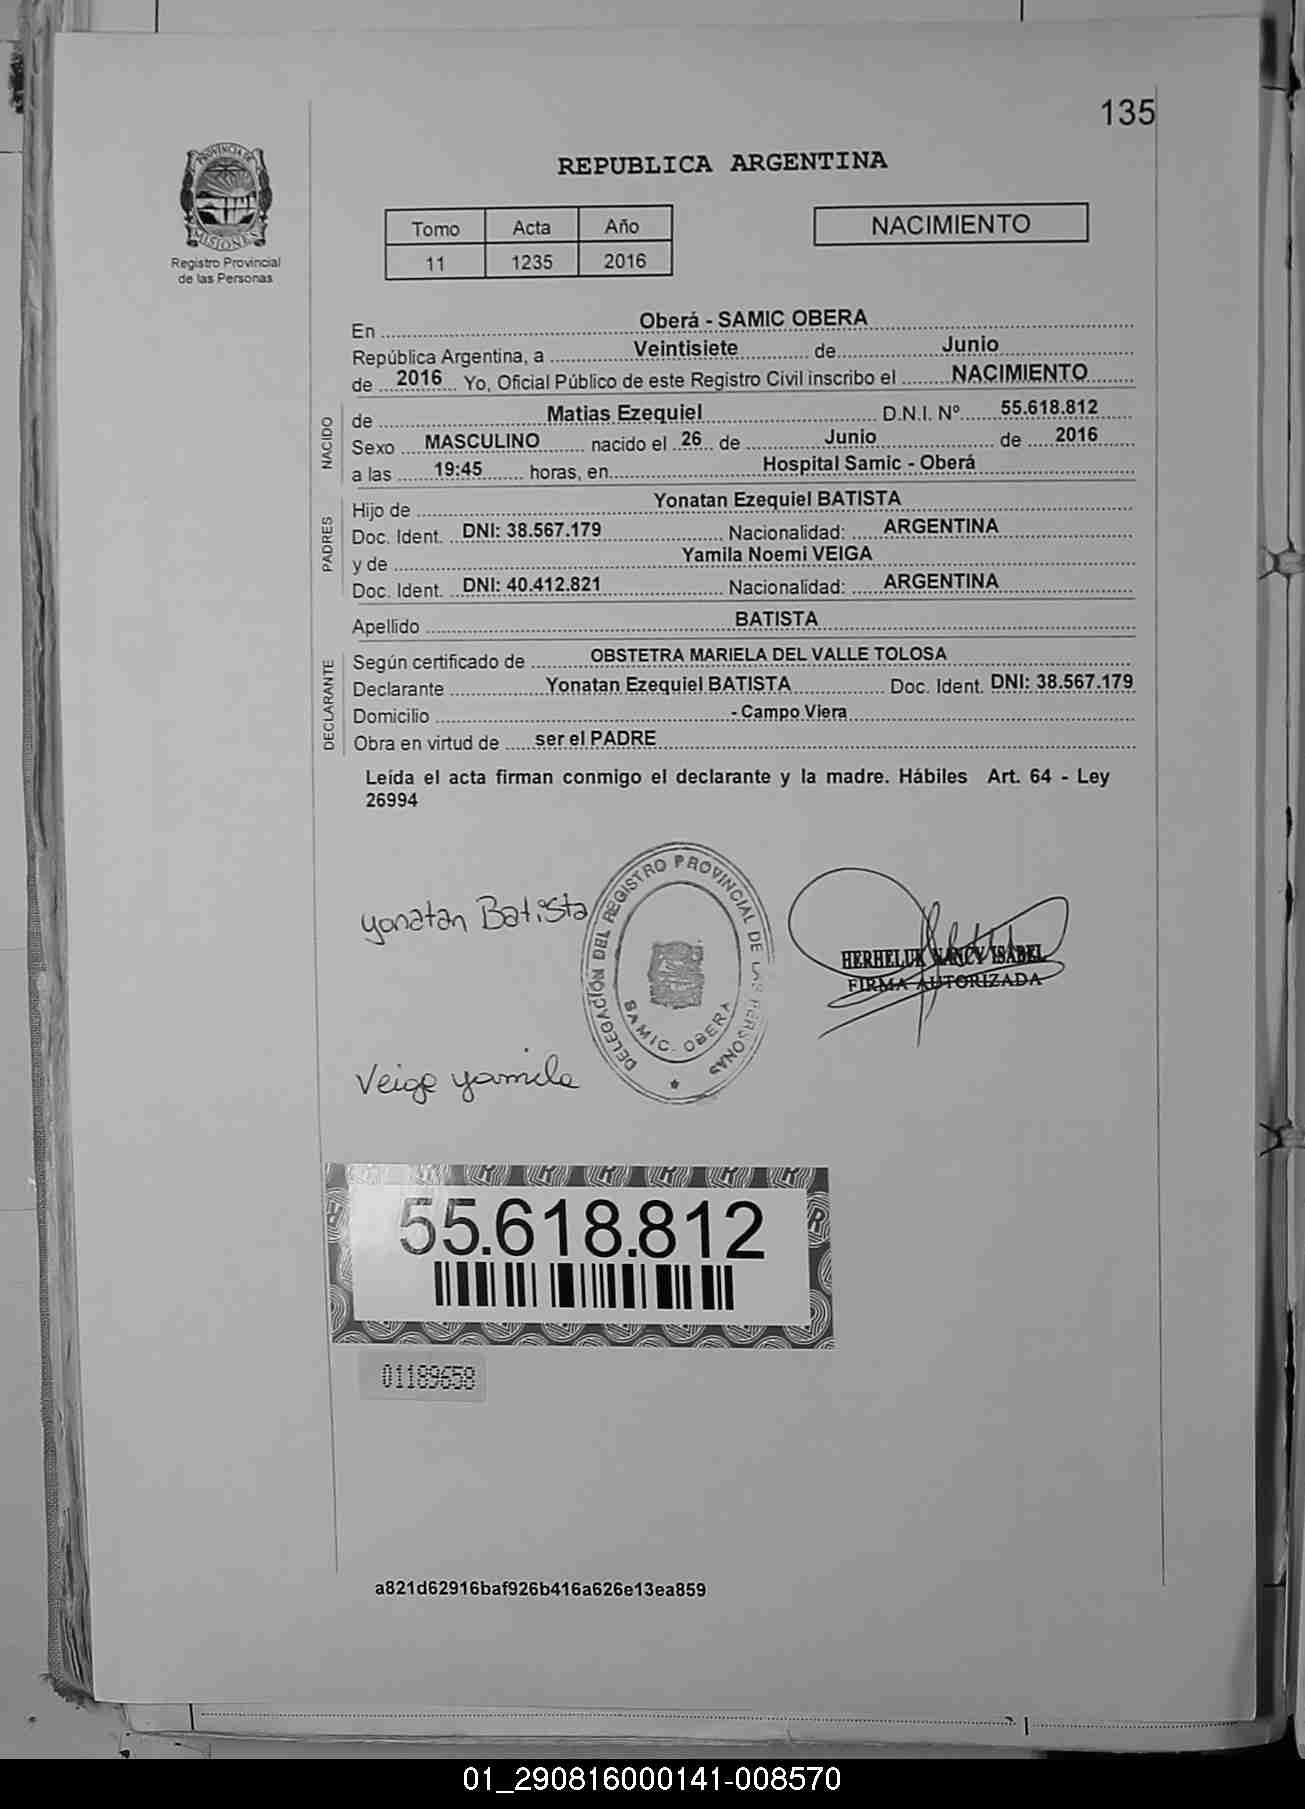 135
PROVINCIA DE
MISIONES
Registro Provincial
de las Personas
REPUBLICA ARGENTINA
Tomo Acta Año
11 1235 2016
NACIMIENTO
En Oberá - SAMIC OBERA
República Argentina, a Veintisiete de Junio
de 2016 Yo, Oficial Público de este Registro Civil inscribo el NACIMIENTO
NACIDO
de Matias Ezequiel D.N.I. Nº 55.618.812
Sexo MASCULINO nacido el 26 de Junio de 2016
a las 19:45 horas, en Hospital Samic - Oberá
PADRES
Hijo de Yonatan Ezequiel BATISTA
Doc. Ident. DNI: 38.567.179 Nacionalidad: ARGENTINA
y de Yamila Noemi VEIGA
Doc. Ident. DNI: 40.412.821 Nacionalidad: ARGENTINA
Apellido BATISTA
DECLARANTE
Según certificado de OBSTETRA MARIELA DEL VALLE TOLOSA
Declarante Yonatan Ezequiel BATISTA Doc. Ident. DNI: 38.567.179
Domicilio - Campo Viera
Obra en virtud de ser el PADRE
Leída el acta firman conmigo el declarante y la madre. Hábiles Art. 64 - Ley
26994
yonatan Batista
DELEGACIÓN DEL REGISTRO PROVINCIAL DE LAS PERSONAS
SAMIC. OBERA
HERHELUK NANCY ISABEL
FIRMA AUTORIZADA
Veiga yamila
55.618.812
01189658
a821d62916baf926b416a626e13ea859
01_290816000141-008570